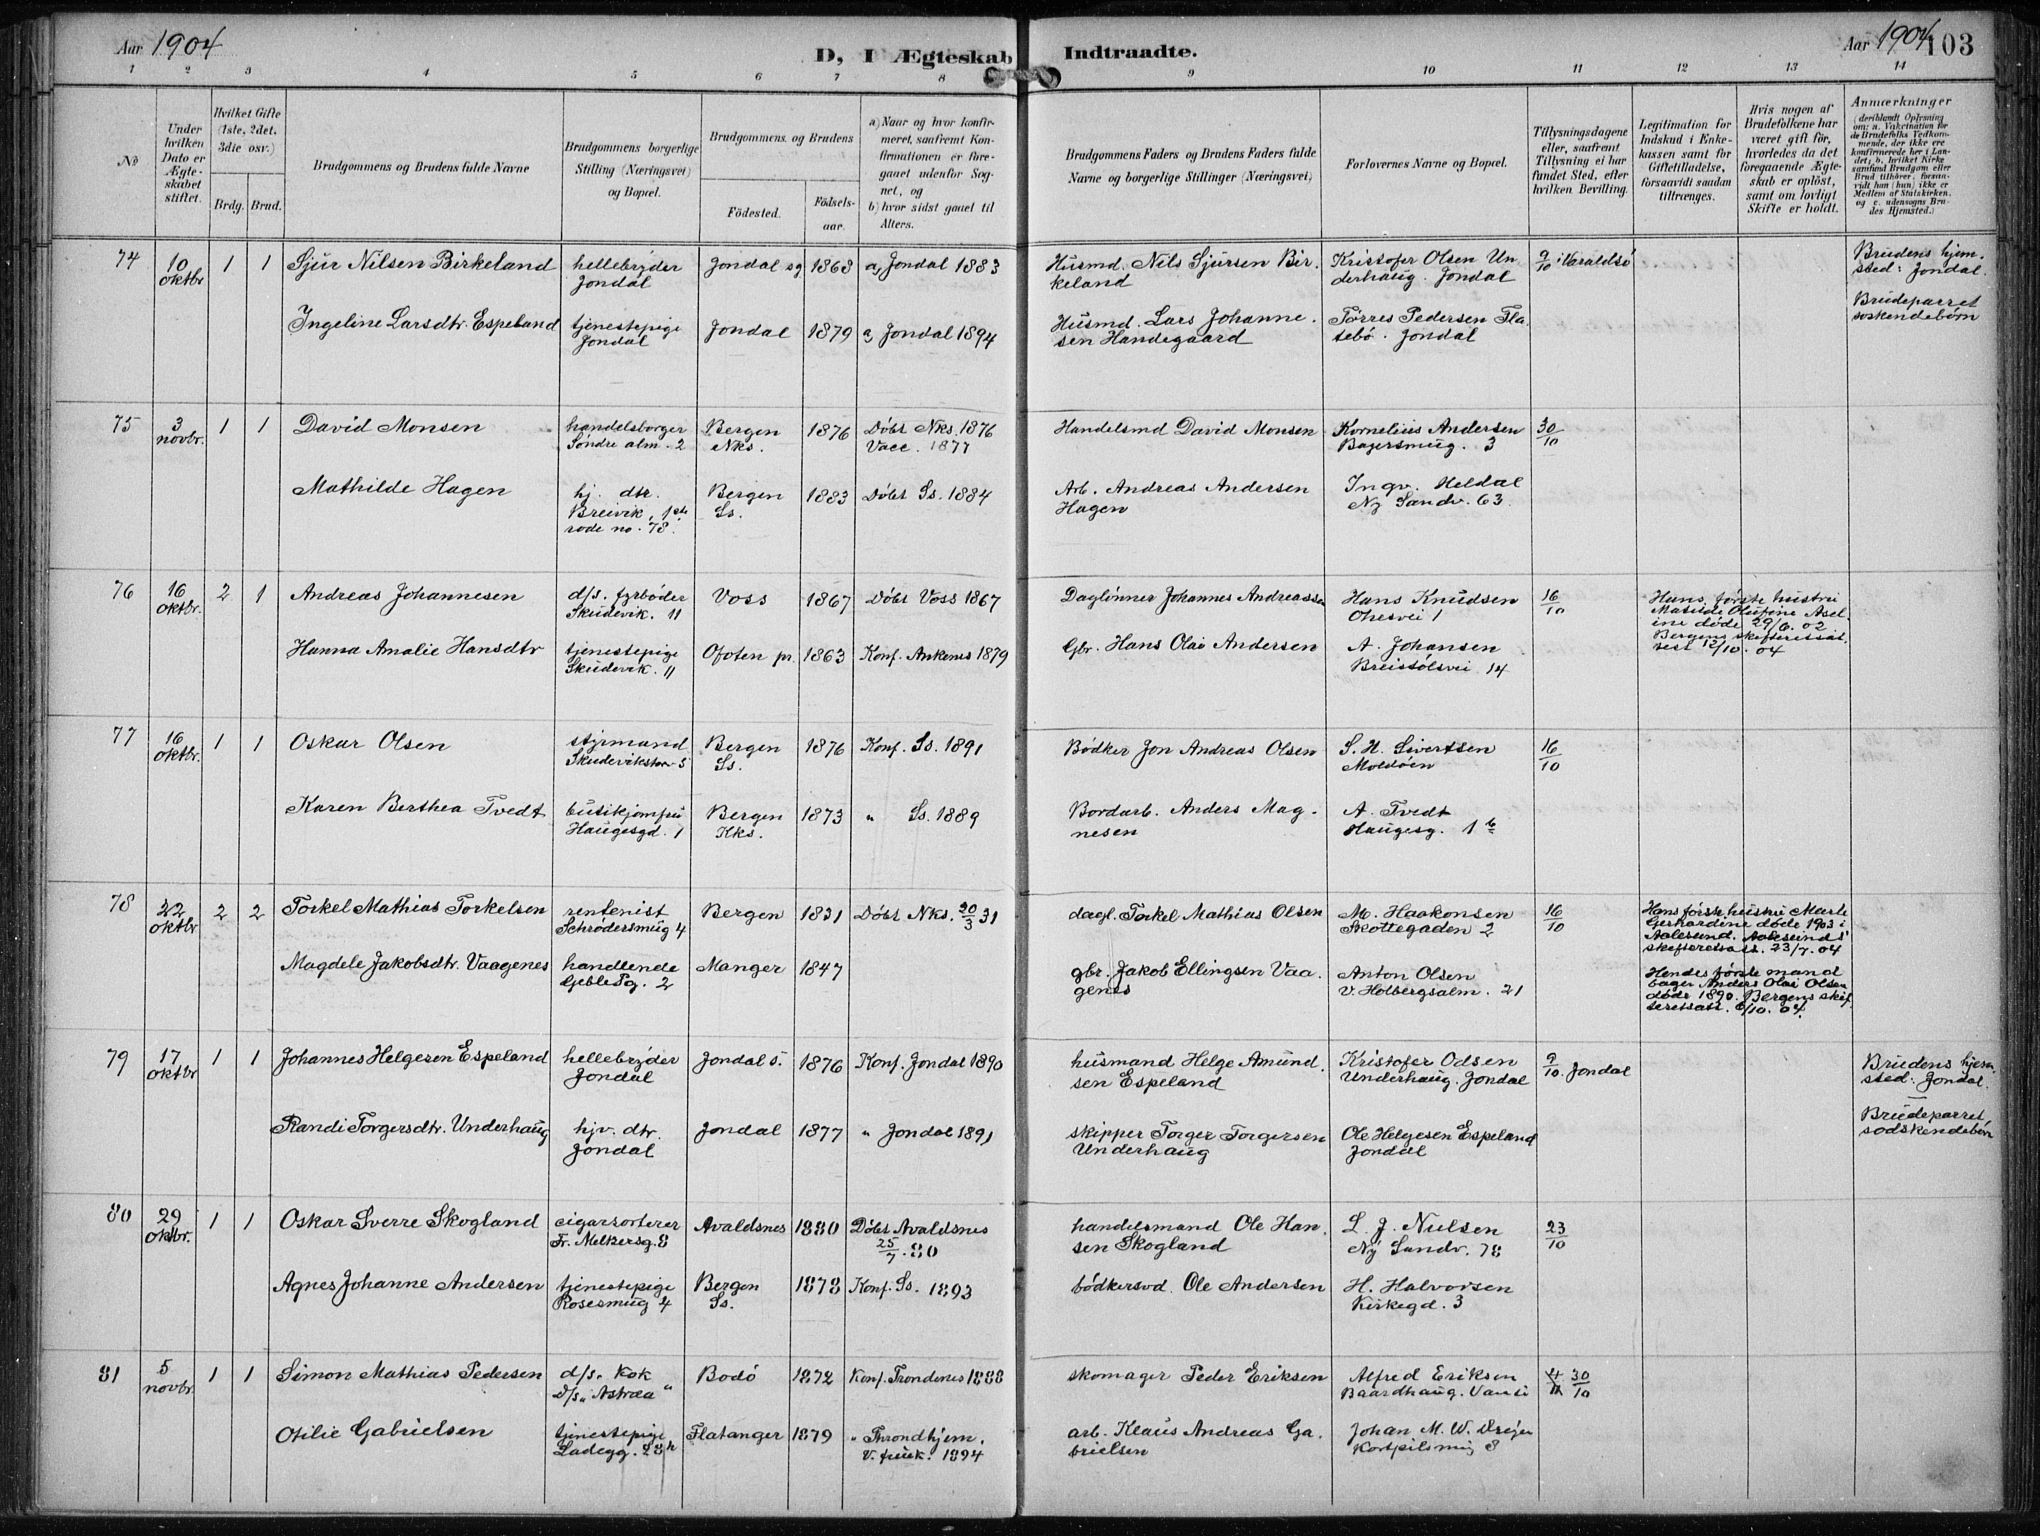 Aar 1904
D, I Ægteskab Indtraadte.
Aar 1904
103
1 2 3 4 5 6 7 8 9 10 11 12 13 14
No
Under hvilken Dato er Ægteskabet stiftet.
Hvilket Gifte (1ste, 2det, 3die osv.)
Brdg. Brud.
Brudgommens og Brudens fulde Navne
Brudgommens borgerlige Stilling (Næringsvei) og Bopæl.
Brudgommens og Brudens
Födested.
Födselsaar.
a) Naar og hvor konfirmeret, saafremt Konfirmationen er foregaaet udenfor Sognet, og
b) hvor sidst gaaet til Alters.
Brudgommens Faders og Brudens Faders fulde Navne og borgerlige Stillinger (Næringsvei)
Forlovernes Navne og Bopæl.
Tillysningsdagene eller, saafremt Tillysning ei har fundet Sted, efter hvilken Bevilling.
Legitimation for Indskud i Enkekassen samt for Giftetilladelse, forsaavidt saadan tiltrænges.
Hvis nogen af Brudefolkene har været gift för, hvorledes da det foregaaende Ægteskab er oplöst, samt om lovligt Skifte er holdt.
Anmærkninger
(deriblandt Oplysning om: a. Vakcination for de Brudefolks Vedkommende, der ikke ere konfirmerede her i Landet; b. hvilket Kirkesamfund Brudgom eller Brud tilhörer, forsaavidt han (hun) ikke er Medlem af Statskirken, og c. udensogns Brudes Hjemsted.)
74 10 oktbr 1 1 Sjur Nilsen Birkeland hellebryder Jondal Jondal sg 1863 a) Jondal 1883 Husmd. Nils Sjursen Birkeland Kristofer Olsen Underhaug. Jondal 9/10 i Varaldsö Brudens hjemsted: Jondal.
Ingeline Larsdtr. Espeland tjenestepige Jondal Jondal 1879 a) Jondal 1894 Husmd. Lars Johannesen Handegaard Törres Pedersen Flatebö. Jondal Brudeparret soskendebörn
75 3 novbr. 1 1 David Monsen handelsborger Söndre alm. 2 Bergen Nks. 1876 Döbt Nks. 1876 Vacc. 1877 Handelsmd David Monsen Kornelius Andersen Bagersmug. 3 30/10
Mathilde Hagen hj. dtr. Breivik, 1ste rode no. 78. Bergen Ss. 1883 Döbt Ss. 1884 Arb. Andreas Andersen Hagen Ingv. Heldal Ny Sandv. 63.
76 16 oktbr. 2 1 Andreas Johannesen d/s. fyrböder Skudevik. 11 Voss 1867 Döbt Voss 1867 Daglönner Johannes Andreassen Hans Knudsen 16/10 Hans förste hustru Matilde Olufine döde 29/6. 02 Bergens skifteretsattest 12/10. 04
Hanna Amalie Hansdtr tjenestepige Skudevik. 11 Ofoten pr. 1863 Konf. Ankenes 1879 Gbr. Hans Olai Andersen A. Johansen Breistölsvei 14
77 16 oktbr. 1 1 Oskar Olsen styrmand Skudevikstorv 5 Bergen Ss. 1876 Konf. Ss. 1891 Bödker Jon Andreas Olsen S. H. Sivertsen Moldöen 16/10
Karen Berthea Tvedt butikjomfru Haugesgd. 1 Bergen Kks. 1873 " Ss. 1889 Bordarb. Anders Magnesen A. Tvedt Haugesg. 1 b
78 22 oktbr. 2 2 Torkel Mathias Torkelsen rentenist Schrödersmug 4 Bergen 1831 Döbt Nks. 20/3 31 dagl. Torkel Mathias Olsen M. Haakonsen Skottegaden 2 16/10 Hans förste hustru Marte Gerhardine döde 1903 i Aalesund. Aalesunds skifteretsatt. 23/7. 04
Magdele Jakobsdtr. Vaagenes handlende Gebleg. 2 Manger 1847 gbr. Jakob Ellingsen Vaagenes Anton Olsen V. Holbergsalm. 21 Hendes förste mand bager Anders Olai Olsen döde 1890. Bergens skifteretsatt. 6/10. 04.
79 17 oktbr 1 1 Johannes Helgesen Espeland hellebryder Jondal Jondal s. 1876 Konf. Jondal 1890 husmand Helge Amundsen Espeland Kristofer Odsen Underhaug. Jondal 9/10. Jondal Brudens hjemsted: Jondal.
Randi Torgersdtr. Underhaug hjv. dtr. Jondal Jondal 1877 " Jondal 1891 skipper Torger Torgersen Underhaug Ole Helgesen Espeland Jondal Brudeparret sodskendebörn
80 29 oktbr. 1 1 Oskar Sverre Skogland cigarsorterer Fr. Melkersg. 8 Avaldsnes 1880 Döbt Avaldsnes 25/7. 80 handelsmand Ole Hansen Skogland L. J. Nielsen Ny Sandv. 78 23/10
Agnes Johanne Andersen tjenestepige Rosesmug 4 Bergen Ss. 1878 Konf. Ss. 1893 bödkersvd. Ole Andersen H. Halvorsen Kirkegd. 3
81 5 novbr. 1 1 Simon Mathias Pedersen d/s. kok D/s. "Astræa" Bodö 1872 Konf. Trondenes 1888 skomager Peder Eriksen Alfred Eriksen Baardhaug. 30/10
Otilie Gabrielsen tjenestepige Ladegg. Flatanger 1879 " Throndhjem. V. frue k. 1894 arb. Klaus Andreas Gabrielsen Johan M. W. Dreyer Kortpilsmug 8